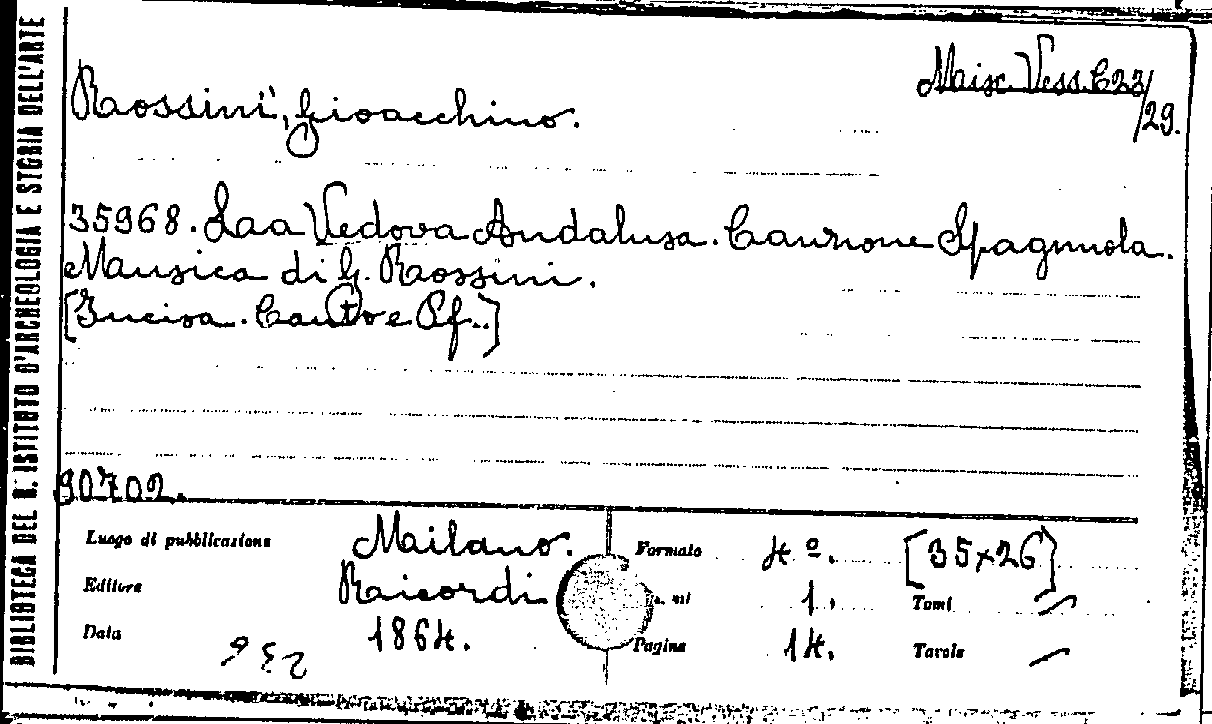 BIBLIOTECA DEL R. ISTITUTO D'ARCHEOLOGIA E STORIA DELL'ARTE
Misc. Vess. C23/29.
Rossini, Gioacchino.
35968. La Vedova Andalusa. Canzone Spagnuola.
Musica di G. Rossini.
[Incisa. Canto e Pf..]
90702.
Luogo di pubblicazione Milano. Formato 4º. [35x26]
Editore Ricordi 1. Tomi —
Data 1864. Pagine 14. Tavole —
236